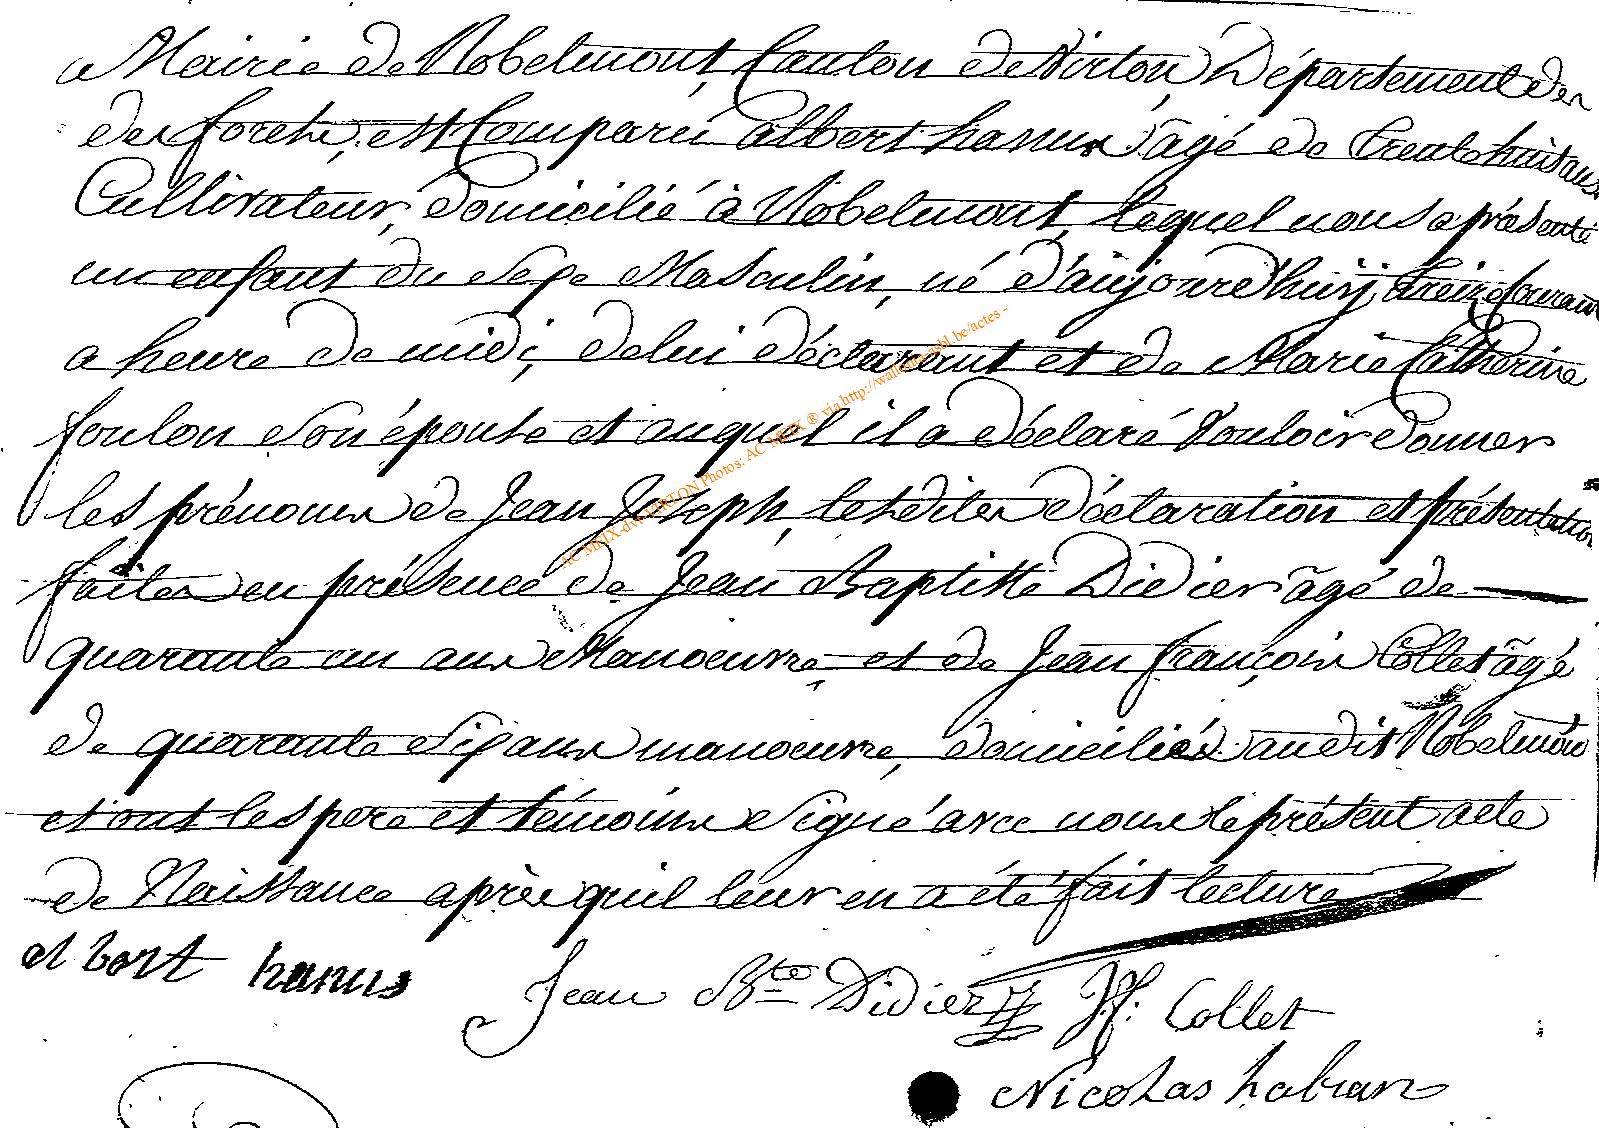 a Mairie de Robelmont, Canton de Virton, Département des
des forets, est Comparu albert hanus âgé de trente huit ans
Cultivateur, domicilié à Robelmont, lequel nous a présenté
un enfant du Sexe Masculin, né d'aujourd'huij treize Courant
a heure de midi, de lui déclarant et de Marie Catherine
foulon son épouse et auquel il a déclaré Vouloir donner
les prénoms de Jean Joseph, lesdites déclaration et présentation
faites en présence de Jean Baptiste Didier âgé de
quarante un ans Manoeuvre et de Jean françois Collet âgé
de quarante Six ans manoeuvre, domiciliés audit Robelmon
et ont les pere et témoins Signé avec nous le présent acte
de Naissance après quil leur en a été fait lecture
albert hanus Jean Bte Didier J.f. Collet
Nicolas
AC MEIX-dt-VIRTON Photos: AC MEIX ® via http://wallonia.shl.be/actes -